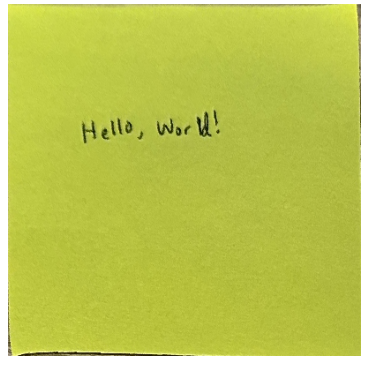 Hello, World!